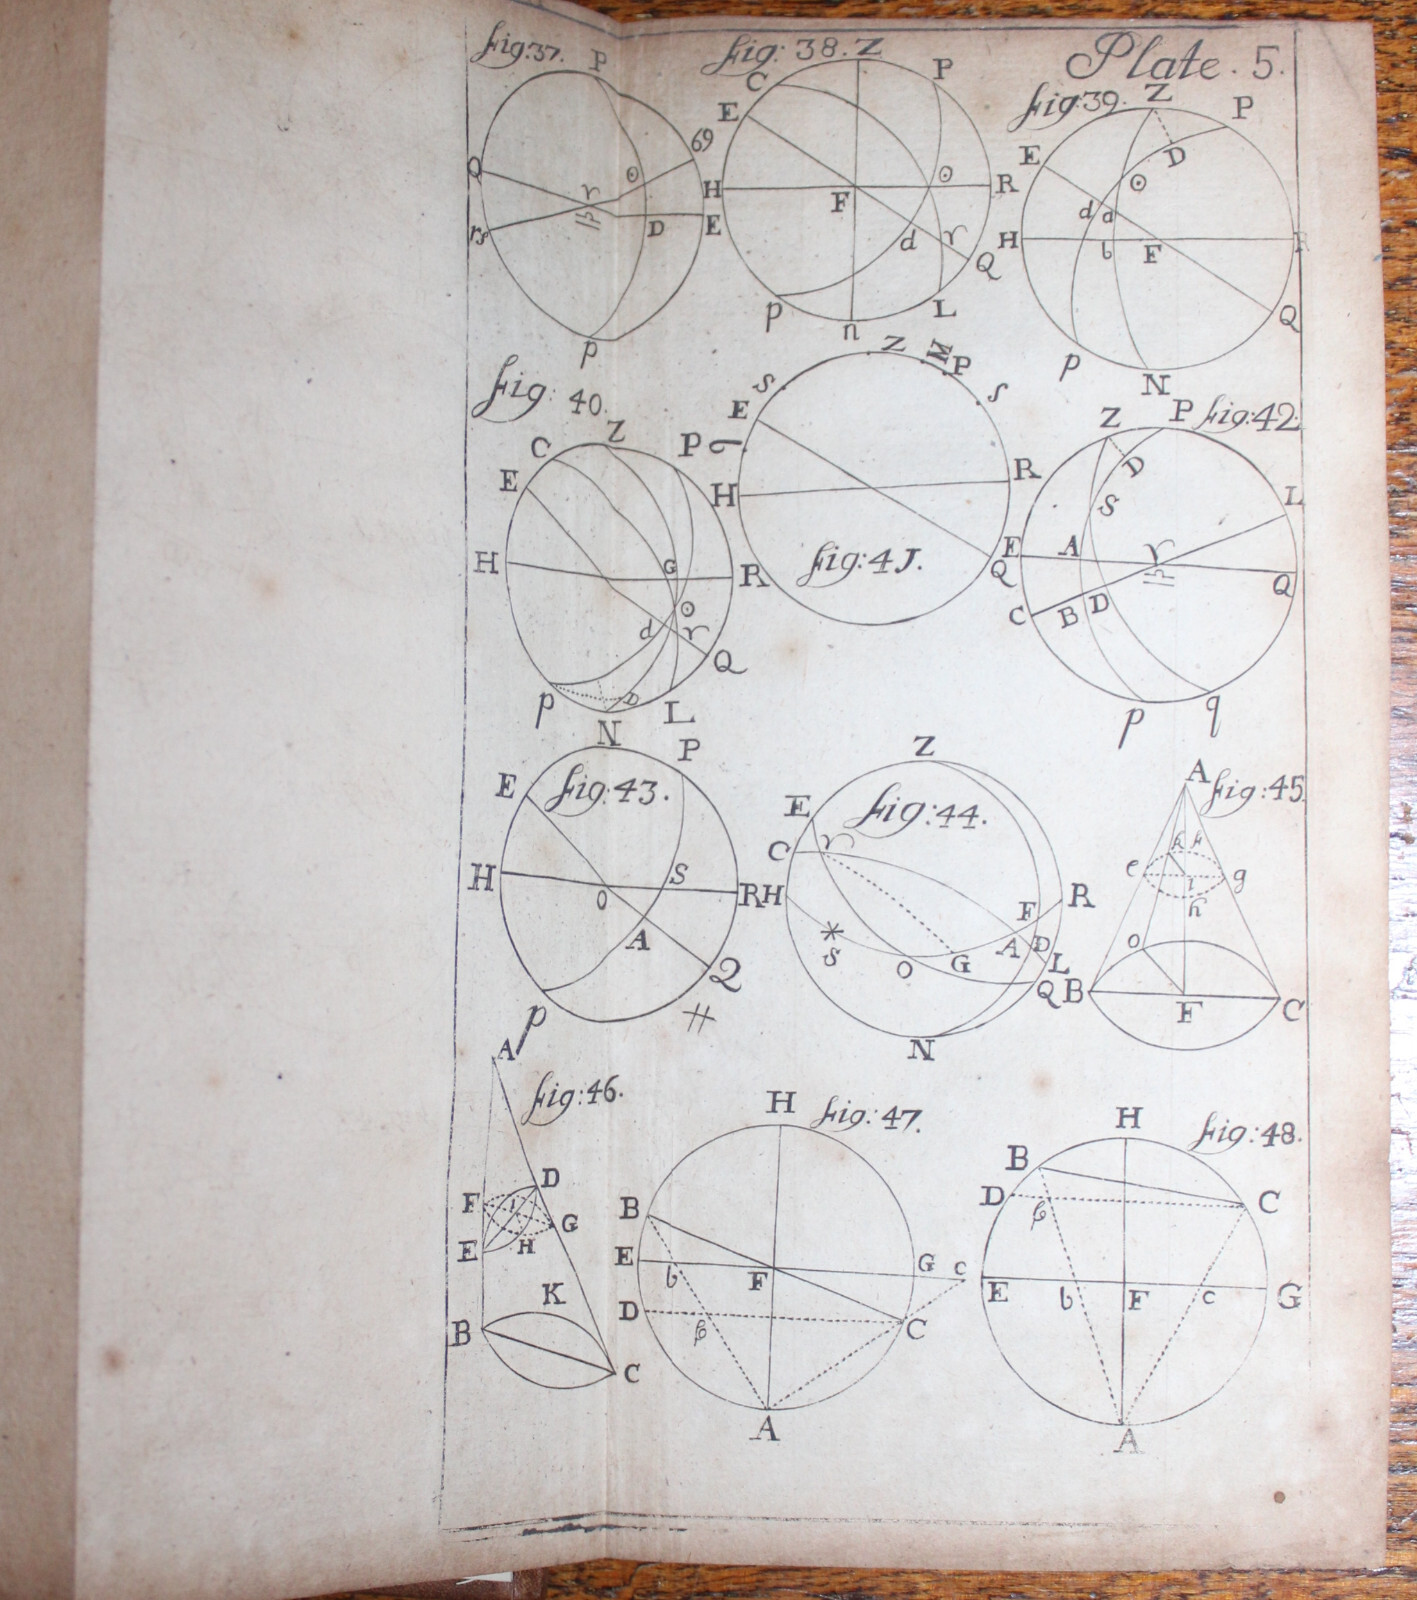 Plate . 5.
Fig:37.
P
Q
♋
♈
☉
♎
♑
D
E
p
Fig: 38.
Z
C
P
E
H
F
☉
R
d
♈
Q
p
n
L
Fig:39.
Z
P
E
D
☉
d
a
H
b
F
R
Q
p
N
Fig: 40.
C
Z
P
E
H
G
R
☉
d
♈
Q
p
D
N
L
Z
M
P
S
S
E
H
R
Q
Fig:4J.
Fig:42
Z
P
D
S
L
E
A
♈
♎
Q
C
B
D
p
q
Fig:43.
P
E
H
S
R
O
A
Q
p
#
Fig:44.
Z
E
C
♈
H
F
R
*
S
O
G
A
D
L
Q
N
Fig:45
A
k
e
i
g
h
O
B
F
C
Fig:46.
A
D
F
i
G
E
H
K
B
C
Fig:47.
H
B
E
b
F
G
c
D
β
C
A
Fig:48.
H
B
D
β
C
E
b
F
c
G
A